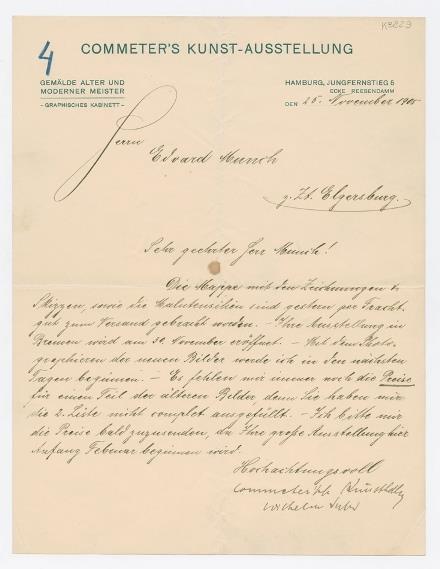 K3229
4
COMMETER'S KUNST-AUSSTELLUNG
GEMÄLDE ALTER UND
MODERNER MEISTER
- GRAPHISCHES KABINETT -
HAMBURG, JUNGFERNSTIEG 5
ECKE REESENDAMM
DEN 25. November 1905
Herrn
Edvard Munch
z. Zt. Elgersburg.
Sehr geehrter Herr Munch!
Die Mappe mit den Zeichnungen &
Skizzen, sowie die Malutensilien sind gestern per Fracht-
gut zum Versand gebracht worden. – Ihre Ausstellung in
Bremen wird am 30. November eröffnet. – Mit dem Photo-
graphieren der neuen Bilder werde ich in den nächsten
Tagen beginnen. – Es fehlen mir immer noch die Preise
für einen Teil der älteren Bilder, denn Sie haben mir
die 2. Liste nicht complet ausgefüllt. – Ich bitte mir
die Preise bald zuzusenden, da Ihre große Ausstellung hier
Anfang Februar beginnen wird.
Hochachtungsvoll
Commeter'sche Kunsthdlg
Wilhelm Suhr